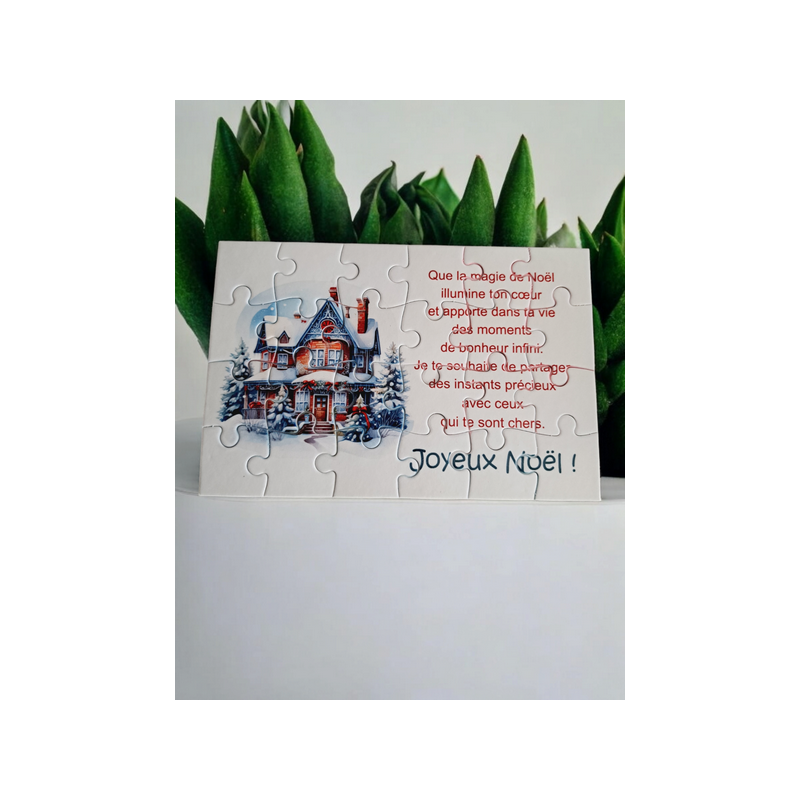 Que la magie de Noël
illumine ton cœur
et apporte dans ta vie
des moments
de bonheur infini.
Je te souhaite de partager
des instants précieux
avec ceux
qui te sont chers.
Joyeux Noël !